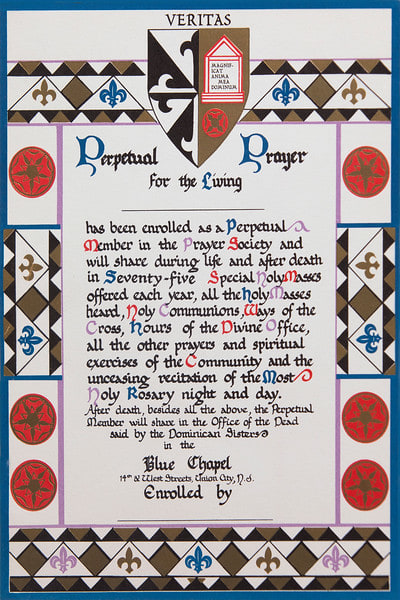 VERITAS
MAGNIF-
ICAT
ANIMA
MEA
DOMINUM
Perpetual Prayer
for the Living
has been enrolled as a Perpetual
Member in the Prayer Society and
will share during life and after death
in Seventy-five Special Holy Masses
offered each year, all the Holy Masses
heard, Holy Communions, Ways of the
Cross, Hours of the Divine Office,
all the other prayers and spiritual
exercises of the Community and the
unceasing recitation of the Most
Holy Rosary night and day.
After death, besides all the above, the Perpetual
Member will share in the Office of the Dead
said by the Dominican Sisters
in the
Blue Chapel
14th & West Streets, Union City, N.J.
Enrolled by